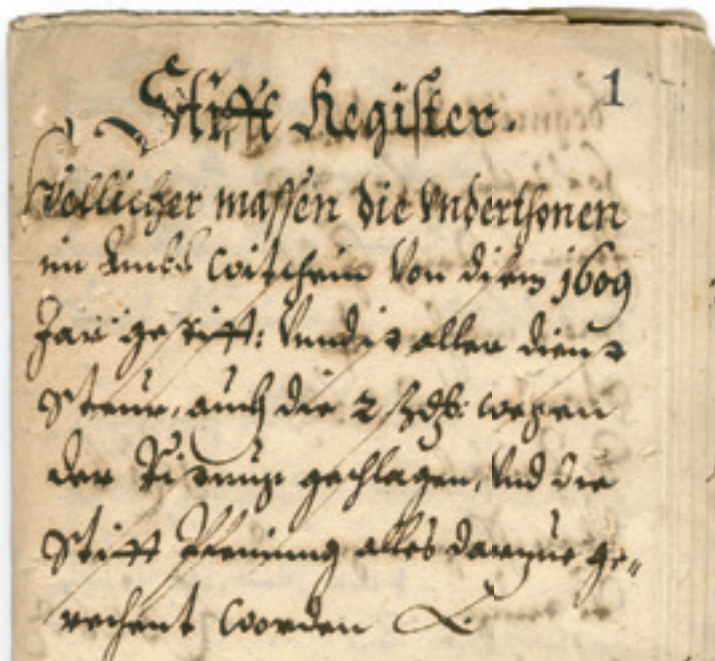 Stifft Register. 1
Wellicher massen die Underthonen
im Ambt von disem 1609
Jar gestifft: aller dienst
Steur, auch die 2 ßdß: wegen
der geschlagen, und die
Stifft Pfenning alles darzue ge„
rechent worden